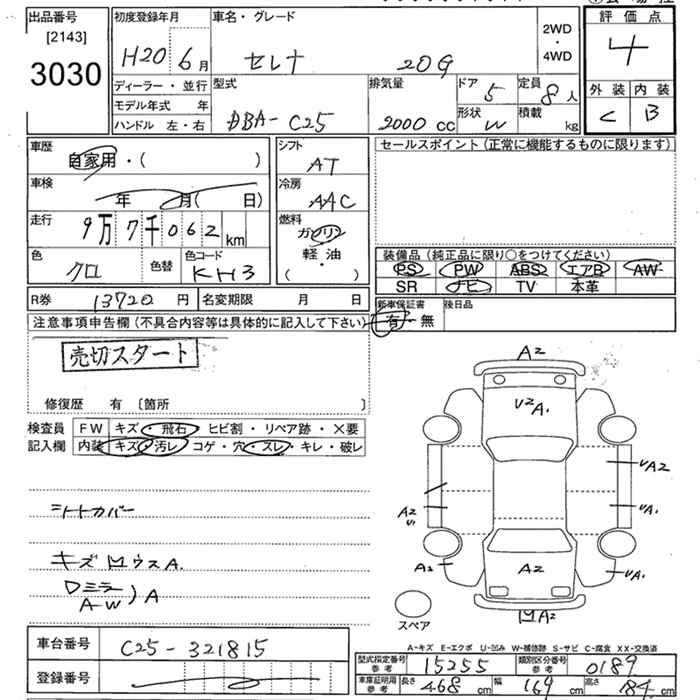 出品番号
[2143]
3030
初度登録年月
H20 6月
車名・グレード
セレナ 20G
2WD
・
4WD
評価点
4
外装 内装
C B
ディーラー・並行
モデル年式 年
ハンドル 左・右
型式
DBA-C25
排気量
2000 cc
ドア 5
形状 W
定員 8人
積載 kg
車歴
自家用・( )
車検
年 月( 日)
走行
9万7千062 km
色
クロ
色替
色コード
KH3
シフト
AT
冷房
AAC
燃料
ガソリン
軽油
( ・ )
セールスポイント(正常に機能するものに限ります)
装備品(純正品に限り○をつけてください)
PS PW ABS エアB AW
SR ナビ TV 本革
R券 13720円 名変期限 月 日
新車保証書
有・無
後日品
注意事項申告欄(不具合内容等は具体的に記入して下さい)
売切スタート
修復歴 有 〔箇所 〕
検査員
記入欄
FW キズ・飛石・ヒビ割・リペア跡・×要
内装 キズ・汚レ・コゲ・穴・スレ・キレ・破レ
シートカバー
Dミラー
AW
) A
A2
U2 A1
UA2
A2
U1
UA1
A2
A2
UA1
A2
スペア
A-キズ E-エクボ U-凹み W-補修跡 S-サビ C-腐食 XX-交換済
車台番号 C25-321815
登録番号
型式指定番号
参考
15255
類別区分番号
参考
0189
車庫証明用
参考
長さ 468 cm 幅 169 cm 高さ 184 cm